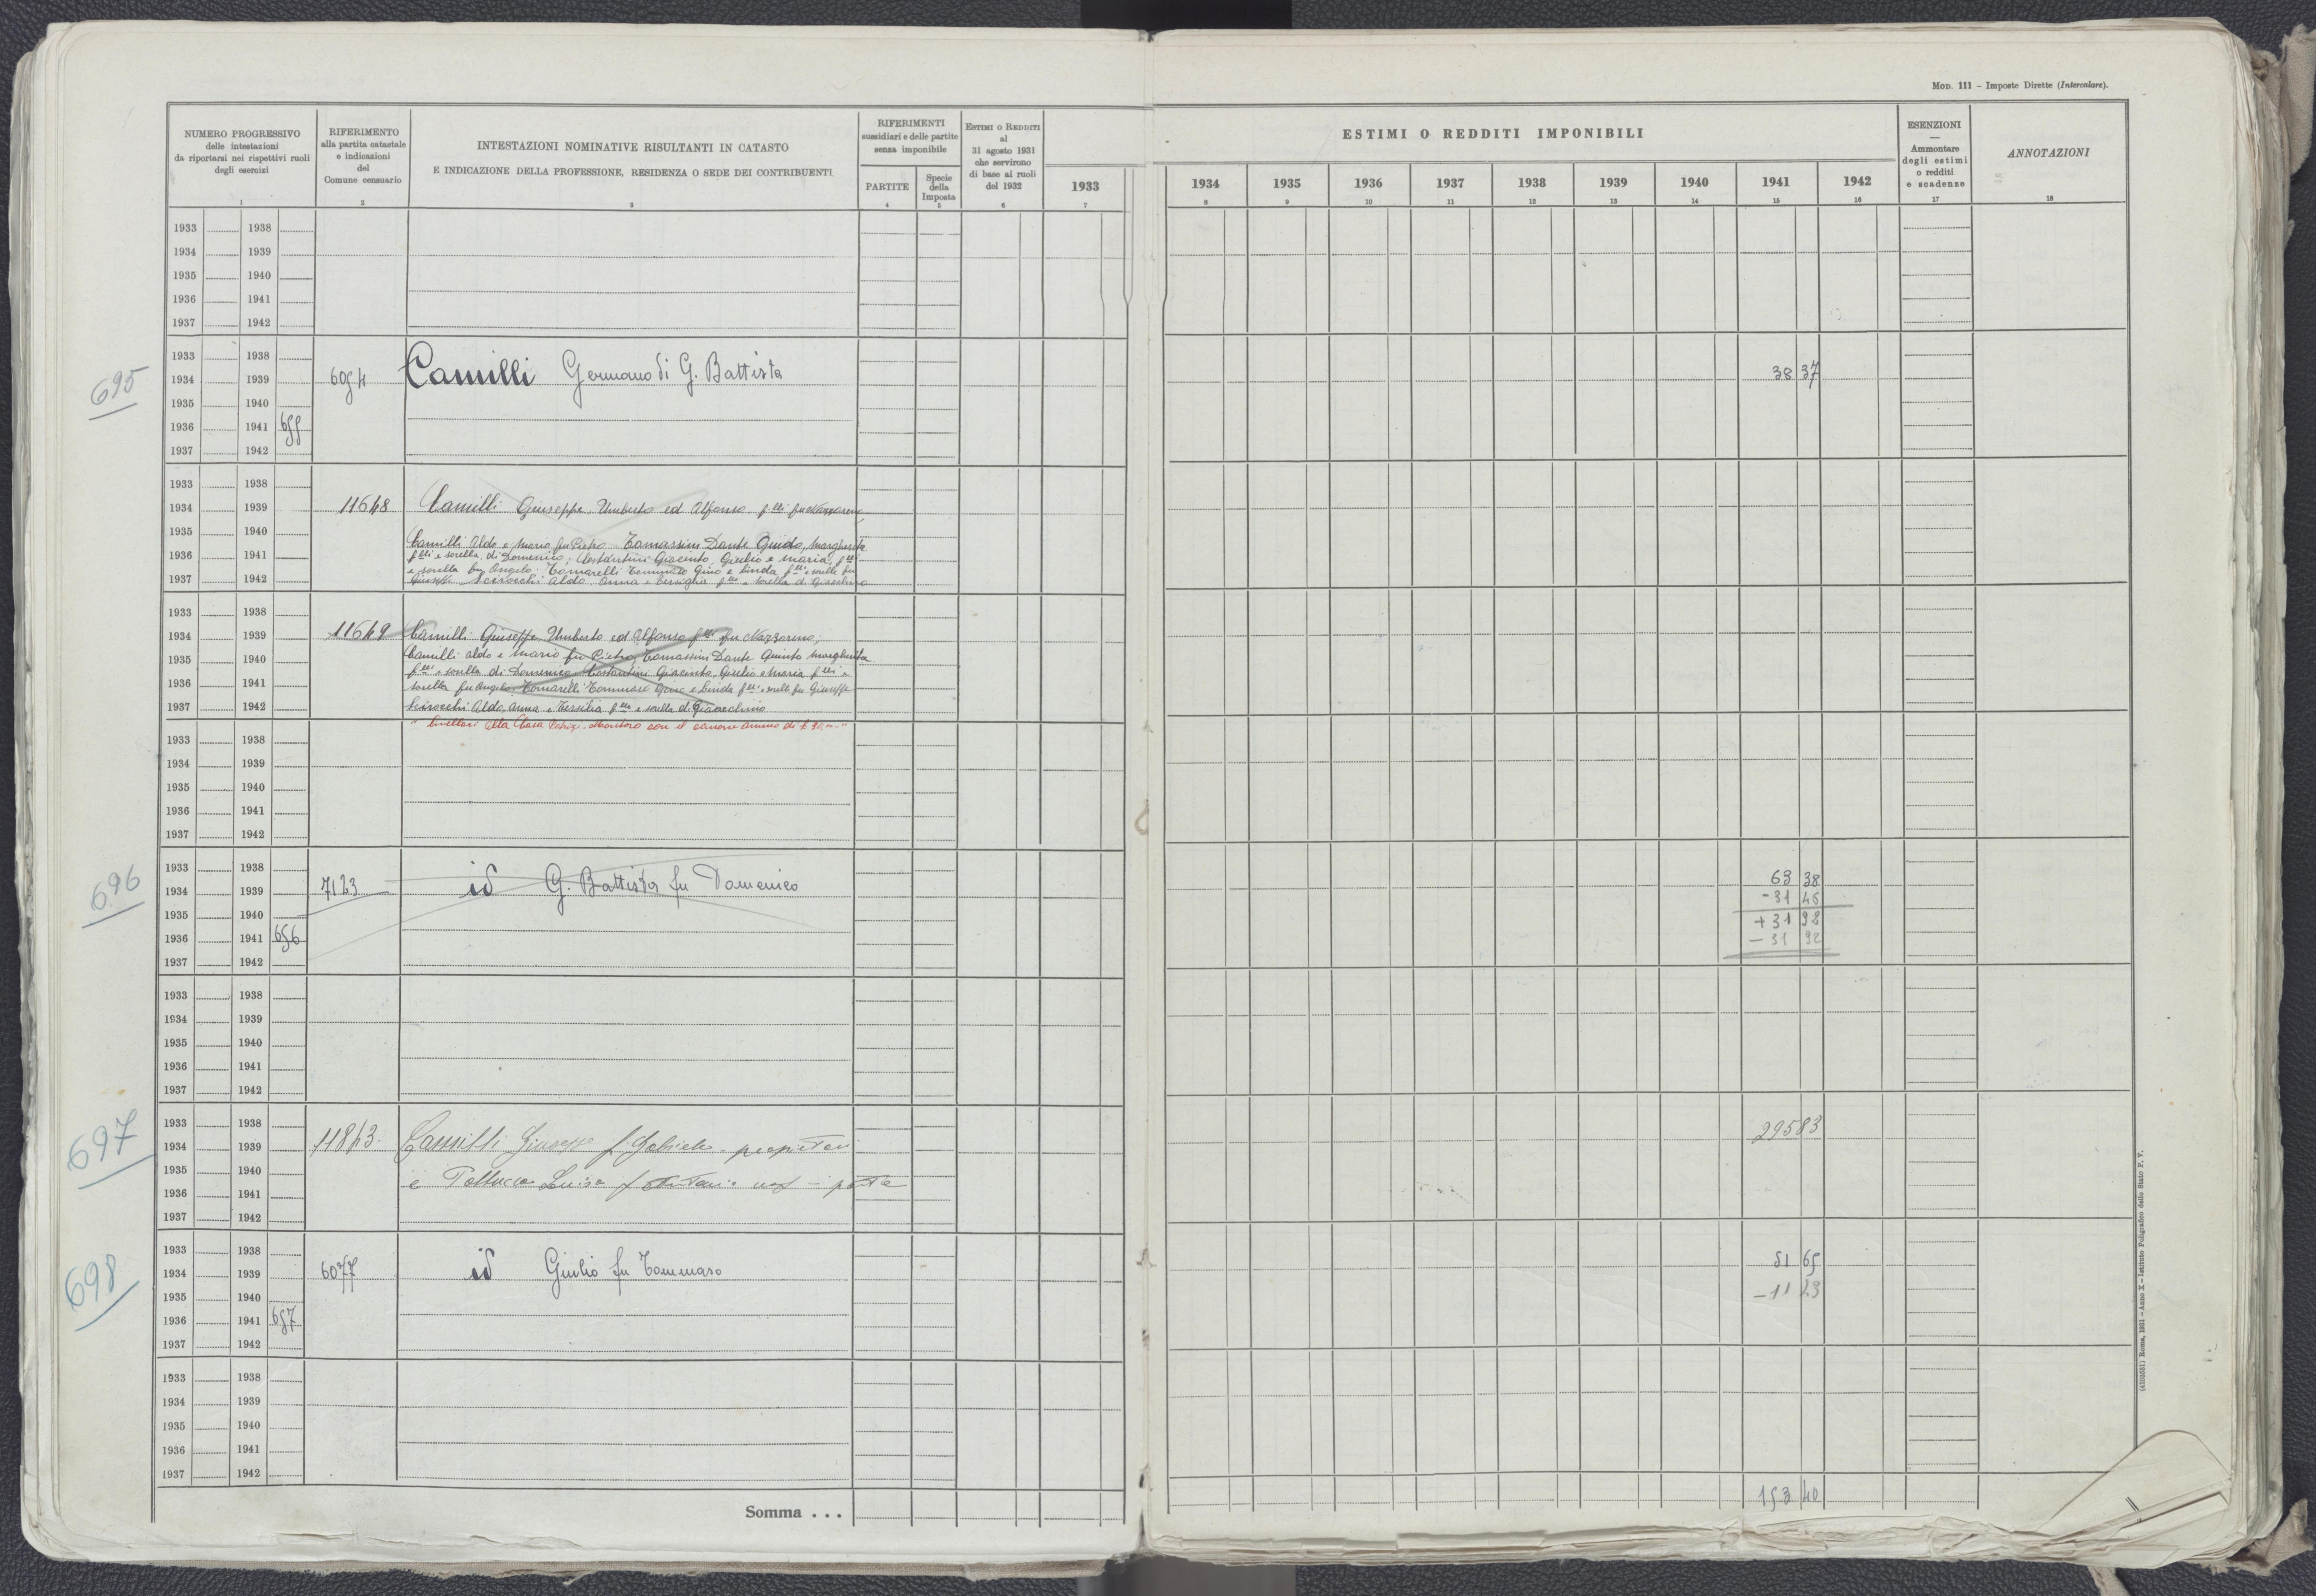 Mod. 111 – Imposte Dirette (Intercalare).
NUMERO PROGRESSIVO
delle intestazioni
da riportarsi nei rispettivi ruoli
degli esercizi
1
RIFERIMENTO
alla partita catastale
e indicazioni
del
Comune censuario
2
INTESTAZIONI NOMINATIVE RISULTANTI IN CATASTO
E INDICAZIONE DELLA PROFESSIONE, RESIDENZA O SEDE DEI CONTRIBUENTI
3
RIFERIMENTI
sussidiari e delle partite
senza imponibile
PARTITE
4
Specie
della
Imposta
5
Estimi o Redditi
al
31 agosto 1931
che servirono
di base ai ruoli
del 1932
6
ESTIMI O REDDITI IMPONIBILI
1933 1934 1935 1936 1937 1938 1939 1940 1941 1942
7 8 9 10 11 12 13 14 15 16
ESENZIONI
—
Ammontare
degli estimi
o redditi
e scadenze
17
ANNOTAZIONI
18
1933 1938
1934 1939
1935 1940
1936 1941
1937 1942
695
1933 1938
1934 1939 6094 Camilli Germano di G. Battista 38 37
1935 1940
1936 1941 655
1937 1942
1933 1938
1934 1939 11648 Camilli Giuseppe, Umberto ed Alfonso f.lli fu Nazzareno
1935 1940
Camilli Aldo e Mario fu Pietro Tomassini Dante Guido, Margherita
1936 1941
f.lli e sorella di Domenico; Costantini Giacinto, Giulio e Maria, f.lli
e sorella fu Angelo. Tomarelli Tommaso Gino e Linda f.lli e sorella fu
1937 1942
Giuseppe Scirocchi Aldo, Anna e Ersiglia f.llo e sorella di Gioacchino
1933 1938
1934 1939 11649 Camilli Giuseppe, Umberto ed Alfonso f.lli fu Nazzareno,
1935 1940 Camilli Aldo e Mario fu Pietro, Tomassini Dante Quinto Margherita
1936 1941 f.lli e sorella di Domenico Costantini Giacinto, Giulio e Maria f.lli e
sorella fu Angelo Tomarelli Tommaso Gino e Linda f.lli e sorella fu Giuseppe
1937 1942 Scirocchi Aldo, Anna e Ersilia f.llo e sorella di Gioacchino
" livellari alla Casa Patriz. Montoro con il canone annuo di £
1933 1938
1934 1939
1935 1940
1936 1941
1937 1942
696
1933 1938 63 38
1934 1939 7123 id G. Battista fu Domenico
- 31 46
1935 1940 + 31 92
1936 1941 656 - 31 92
1937 1942
1933 1938
1934 1939
1935 1940
1936 1941
1937 1942
697
1933 1938 295 83
1934 1939 11843 Camilli Giuseppe f Gabriele - proprietari
1935 1940
e Luisa f
1936 1941
1937 1942
698
1933 1938 51 65
1934 1939 6077 id Giulio fu Tommaso
1935 1940 - 11 23
1936 1941 657
1937 1942
1933 1938
1934 1939
1935 1940
1936 1941
1937 1942
Somma . . . 153 40
(4103881) Roma, 1931 – Anno X – Istituto Poligrafico dello Stato P. V.